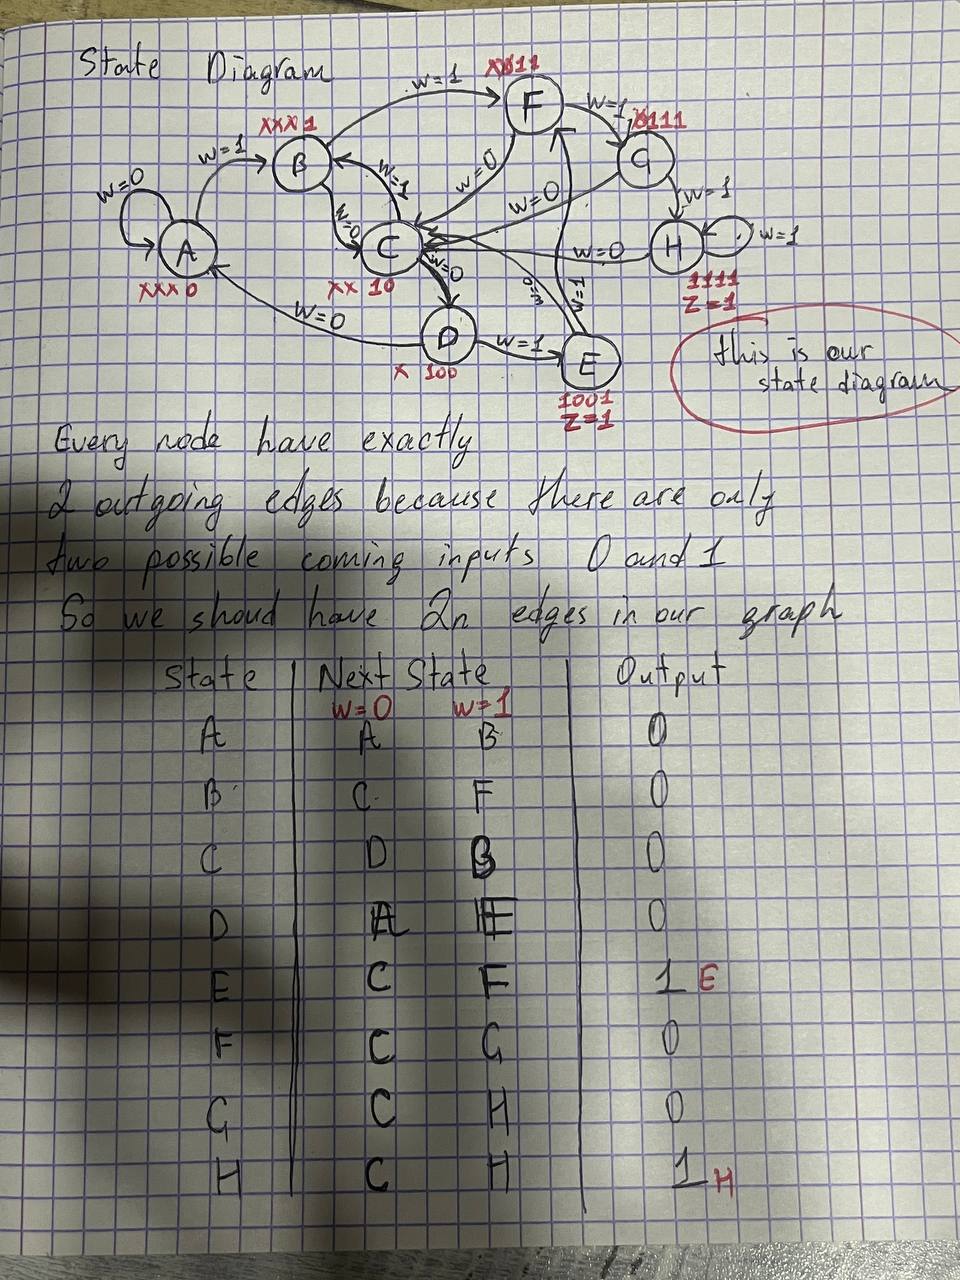 State Diagram
w=1
XX11
w=1
X111
XXX1
w=1
F
B
G
w=0
w=1
w=0
w=0
w=0
w=1
A
C
w=0
H
w=1
XXX0
XX10
w=0
1111
Z=1
w=0
D
w=1
w=0
w=1
E
X 100
1001
Z=1
this is our
state diagram
Every node have exactly
2 outgoing edges because there are only
two possible coming inputs 0 and 1
So we shoud have 2n edges in our graph
State Next State Output
w=0 w=1
A A B 0
B C F 0
C D B 0
D A E 0
E C F 1 E
F C G 0
G C H 0
H C H 1 H